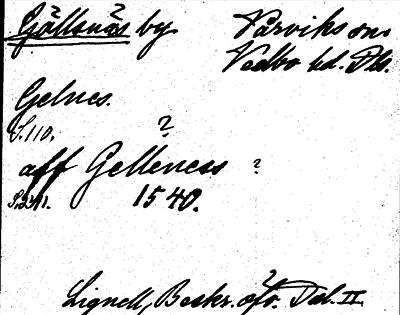 Gjällsnäs by Vårviks sn.
Vedbo hd. Dls.
Gelnes.
S. 110. ?
aff Gelleness ?
S. 241. 1540.
Lignell, Beskr. öfv. Dal. II